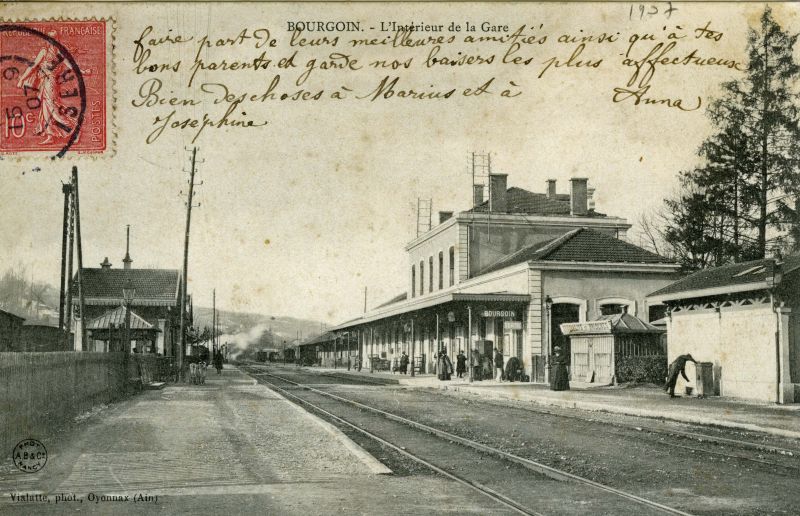 BOURGOIN. - L'Intérieur de la Gare
1907
faire part de leurs meilleures amitiés ainsi qu'à tes
bons parents et garde nos baisers les plus affectueux
Bien des choses à Marius et à Anna
Joséphine
RÉPUBLIQUE FRANÇAISE
10c
POSTES
ISERE
BOURGOIN
PHOT
A.B & Cie
NANCY
Vialatte, phot., Oyonnax (Ain)